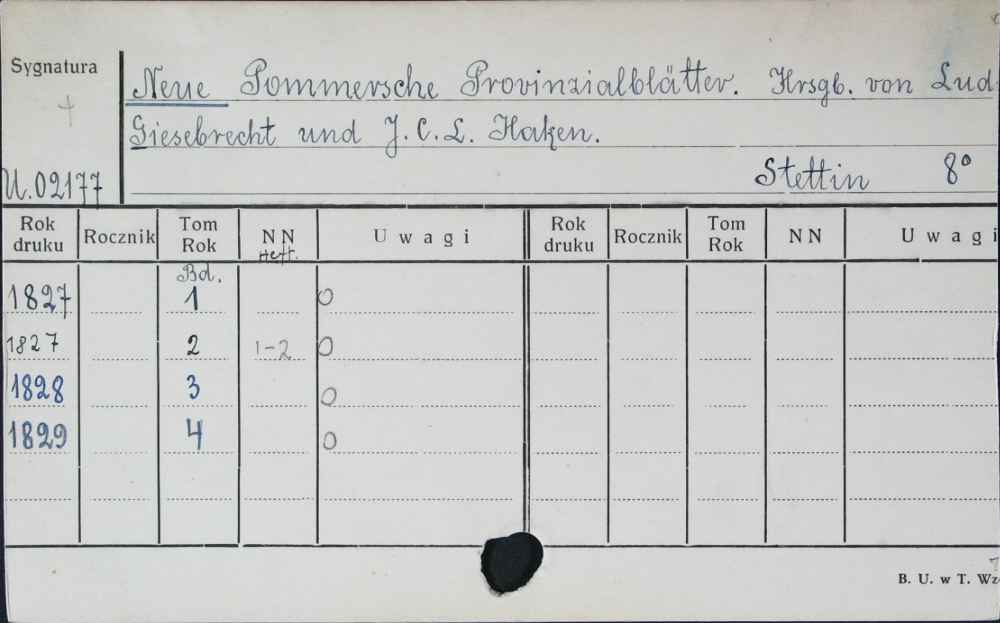 Sygnatura
Neue Pommersche Provinzialblätter. Hrsgb. von Lud
Giesebrecht und J. C. L. Haken.
Stettin 8°
U.02177
Rok druku Rocznik Tom Rok NN Heft. Uwagi Rok druku Rocznik Tom Rok NN Uwagi
Bd.
1827 1 0
1827 2 1-2 0
1828 3 0
1829 4 0
B. U. w T. Wz